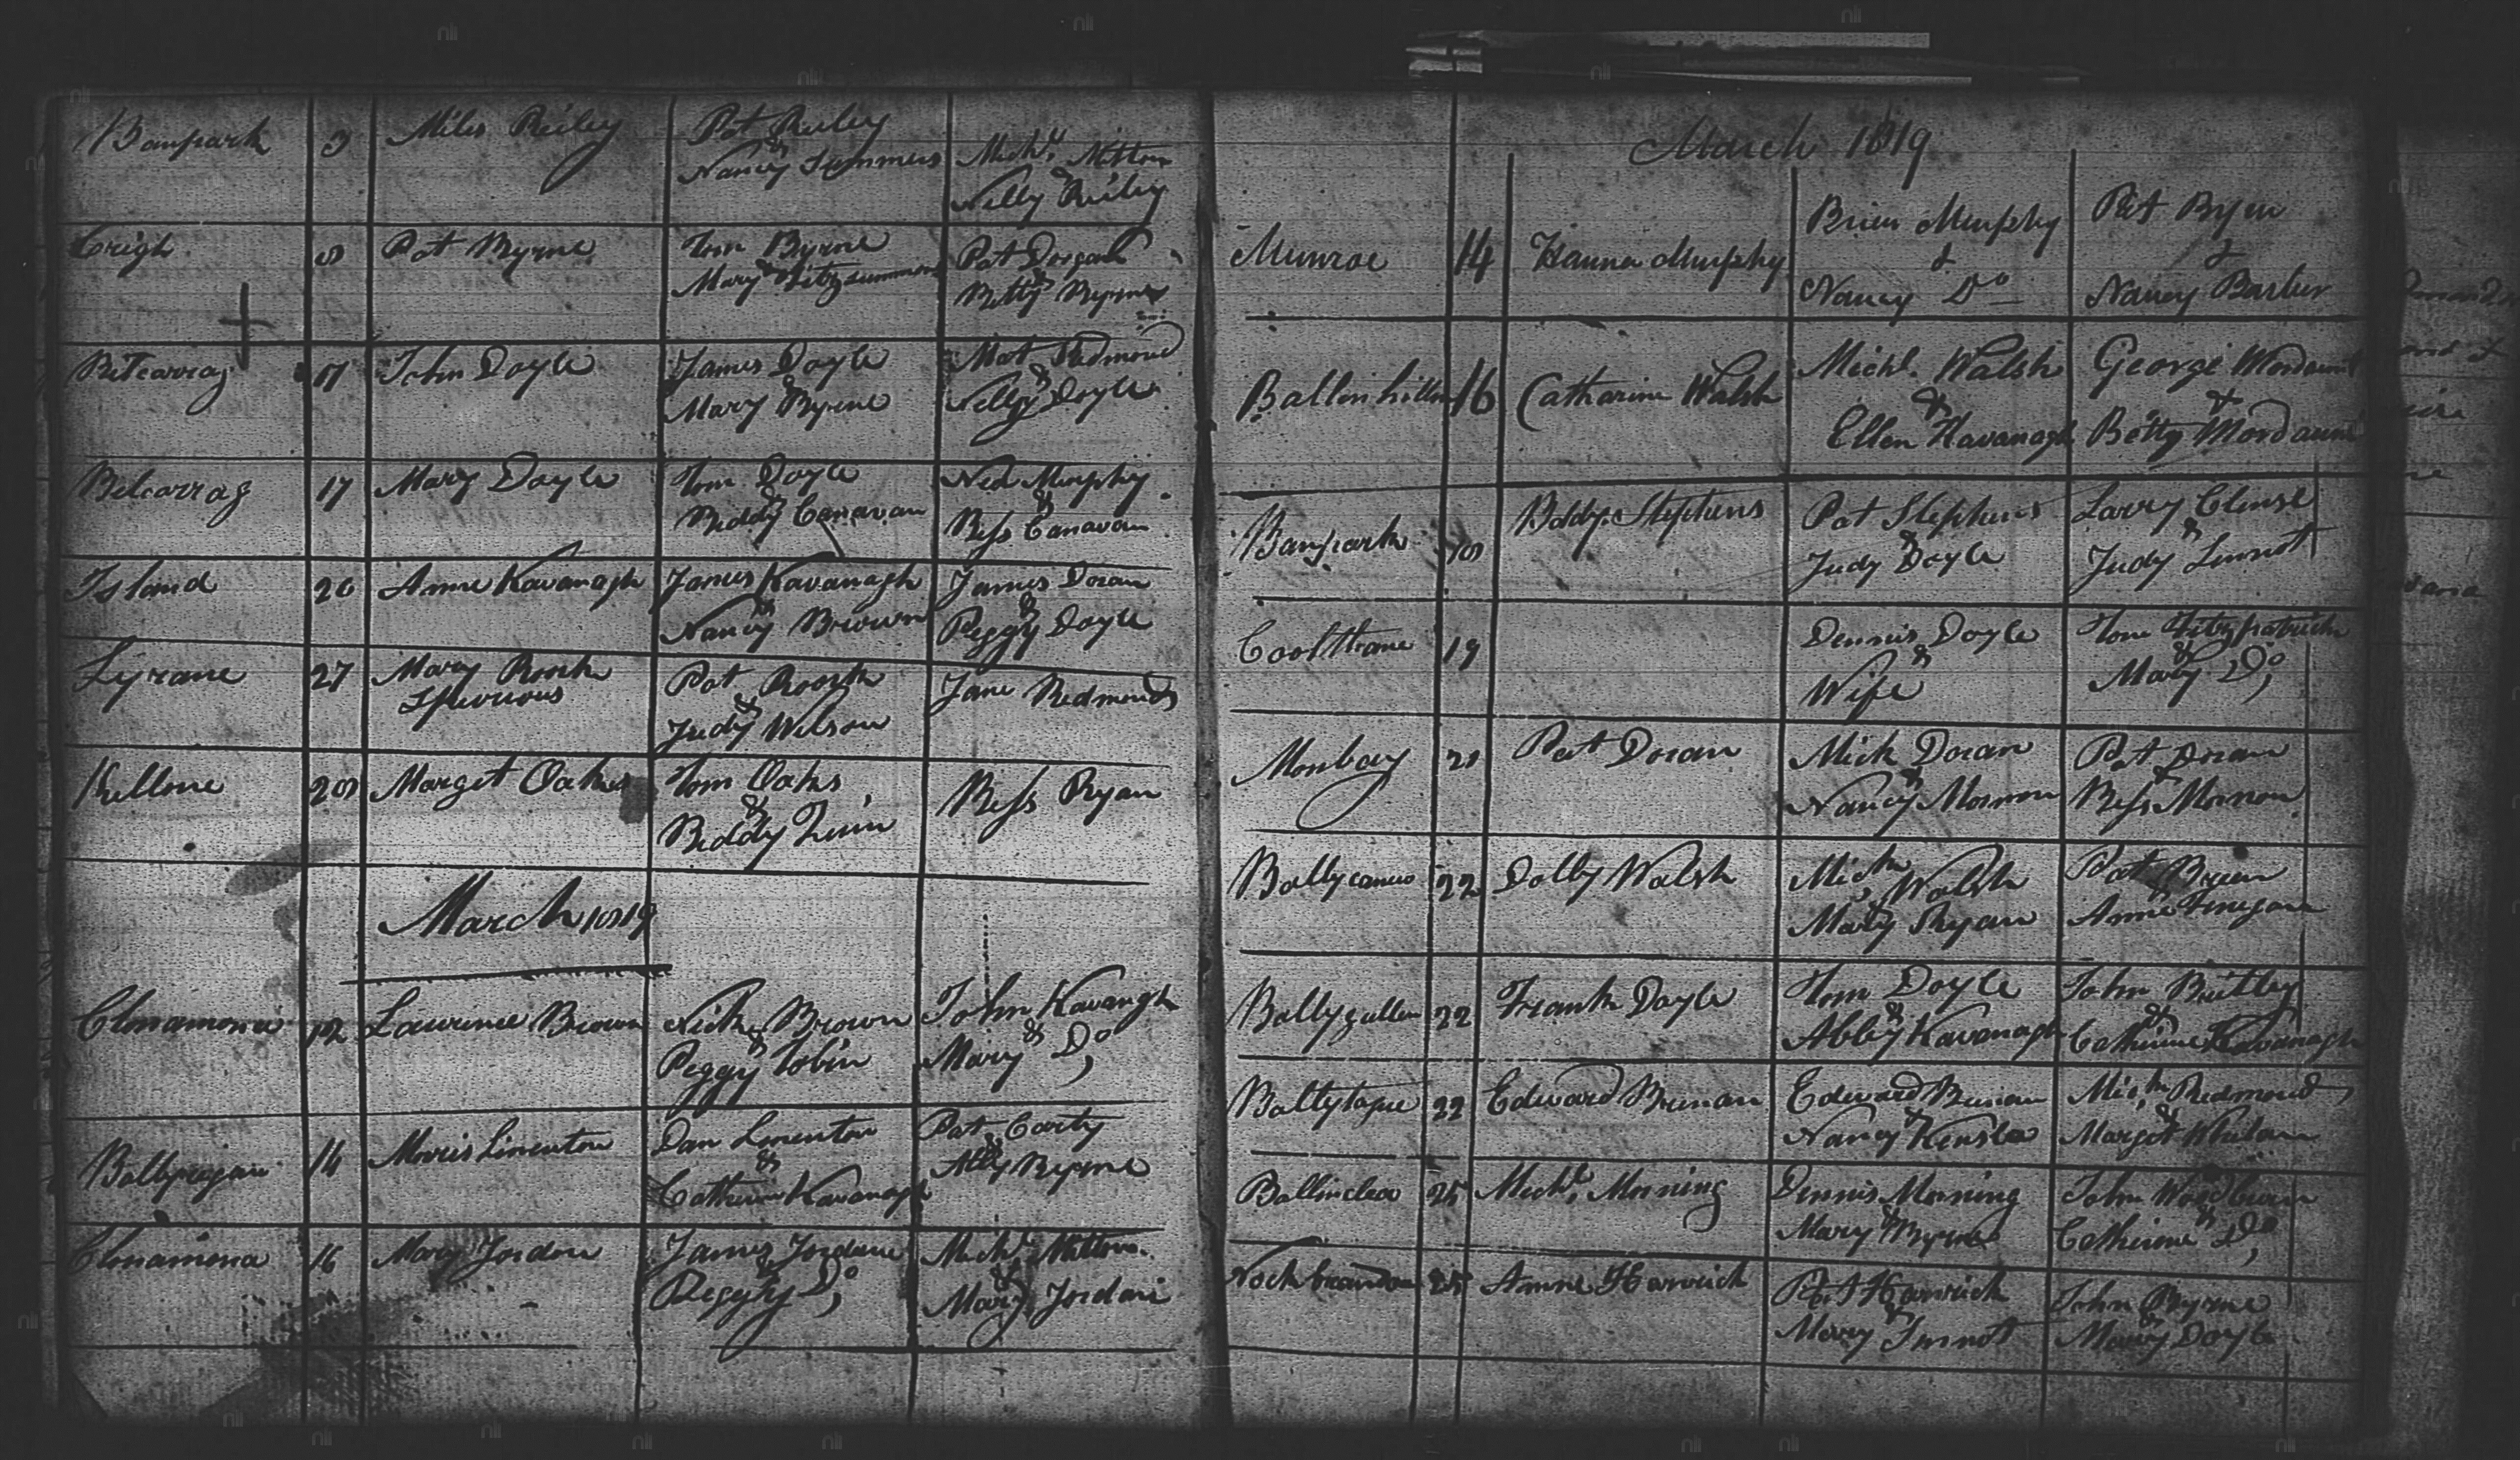 Banpark 3 Miles Reiley Pat Reiley & Nancy Summers Michl. Mitton & Nelly Reiley
Creigh 8 Pat Byrne Tom Byrne & Mary Fitzsummons Pat Dorgan & Betty Byrne
Belcarrag 17 John Doyle James Doyle & Mary Byrne Mat Redmond & Nelly Doyle
Belcarrag 17 Mary Doyle Tom Doyle & Biddy Canavan Ned Murphy & Bess Canavan
Island 26 Anne Kavanagh James Kavanagh & Nancy Brown James Doran & Peggy Doyle
Lyrane 27 Mary Roark Spurious Pat Roark & Judy Wilson Jane Redmonds
Killone 28 Marget Oakes Tom Oaks & Biddy Bess Ryan
March 1819
Clonamona 12 Laurence Brown Nick Brown & Peggy Tobin John Kavangh & Mary Do
14 Morris Linenton Dan Linenton & Catherine Kavanagh Pat Carty & Ally Byrne
Clonamona 16 Mary Jordon James Jordane & Peggy Do Michl. Mitton & Mary Jordan
March 1819
Munroe 14 Hanna Murphy Brien Murphy & Nancy Do Pat Byrn & Nancy Barker
16 Catharine Walsh Michl. Walsh & Ellen Kavanagh George Mordaunt & Betty Mordaunt
Banpark 18 Biddy Stephens Pat Stephens & Judy Doyle Larry & Judy Sinnot
19 Dennis Doyle & Wife Tom Fitzpatrick & Mary Do
Monbay 21 Pat Doran Mick Doran & Nancy Mornon Pat Doran & Bess Mornon
Ballycaneo 22 Dolly Walsh Mick Walsh & Mary Ryan Pat Brien & Anne Finegan
Ballygullen 22 Frank Doyle Tom Doyle & Abby Kavanagh John & Catherine Kavanagh
22 Edward Brenan Edward Brenan & Nancy Kensla Mick Redmond & Marget Whelan
Ballinclea 25 Michl. Morning Dennis Morning & Mary Byrne John Woodburn & Catherine Do
Nockbrandon 25 Anne Harwick Pat Harwick & Mary Sinnot John Byrne & Mary Doyle